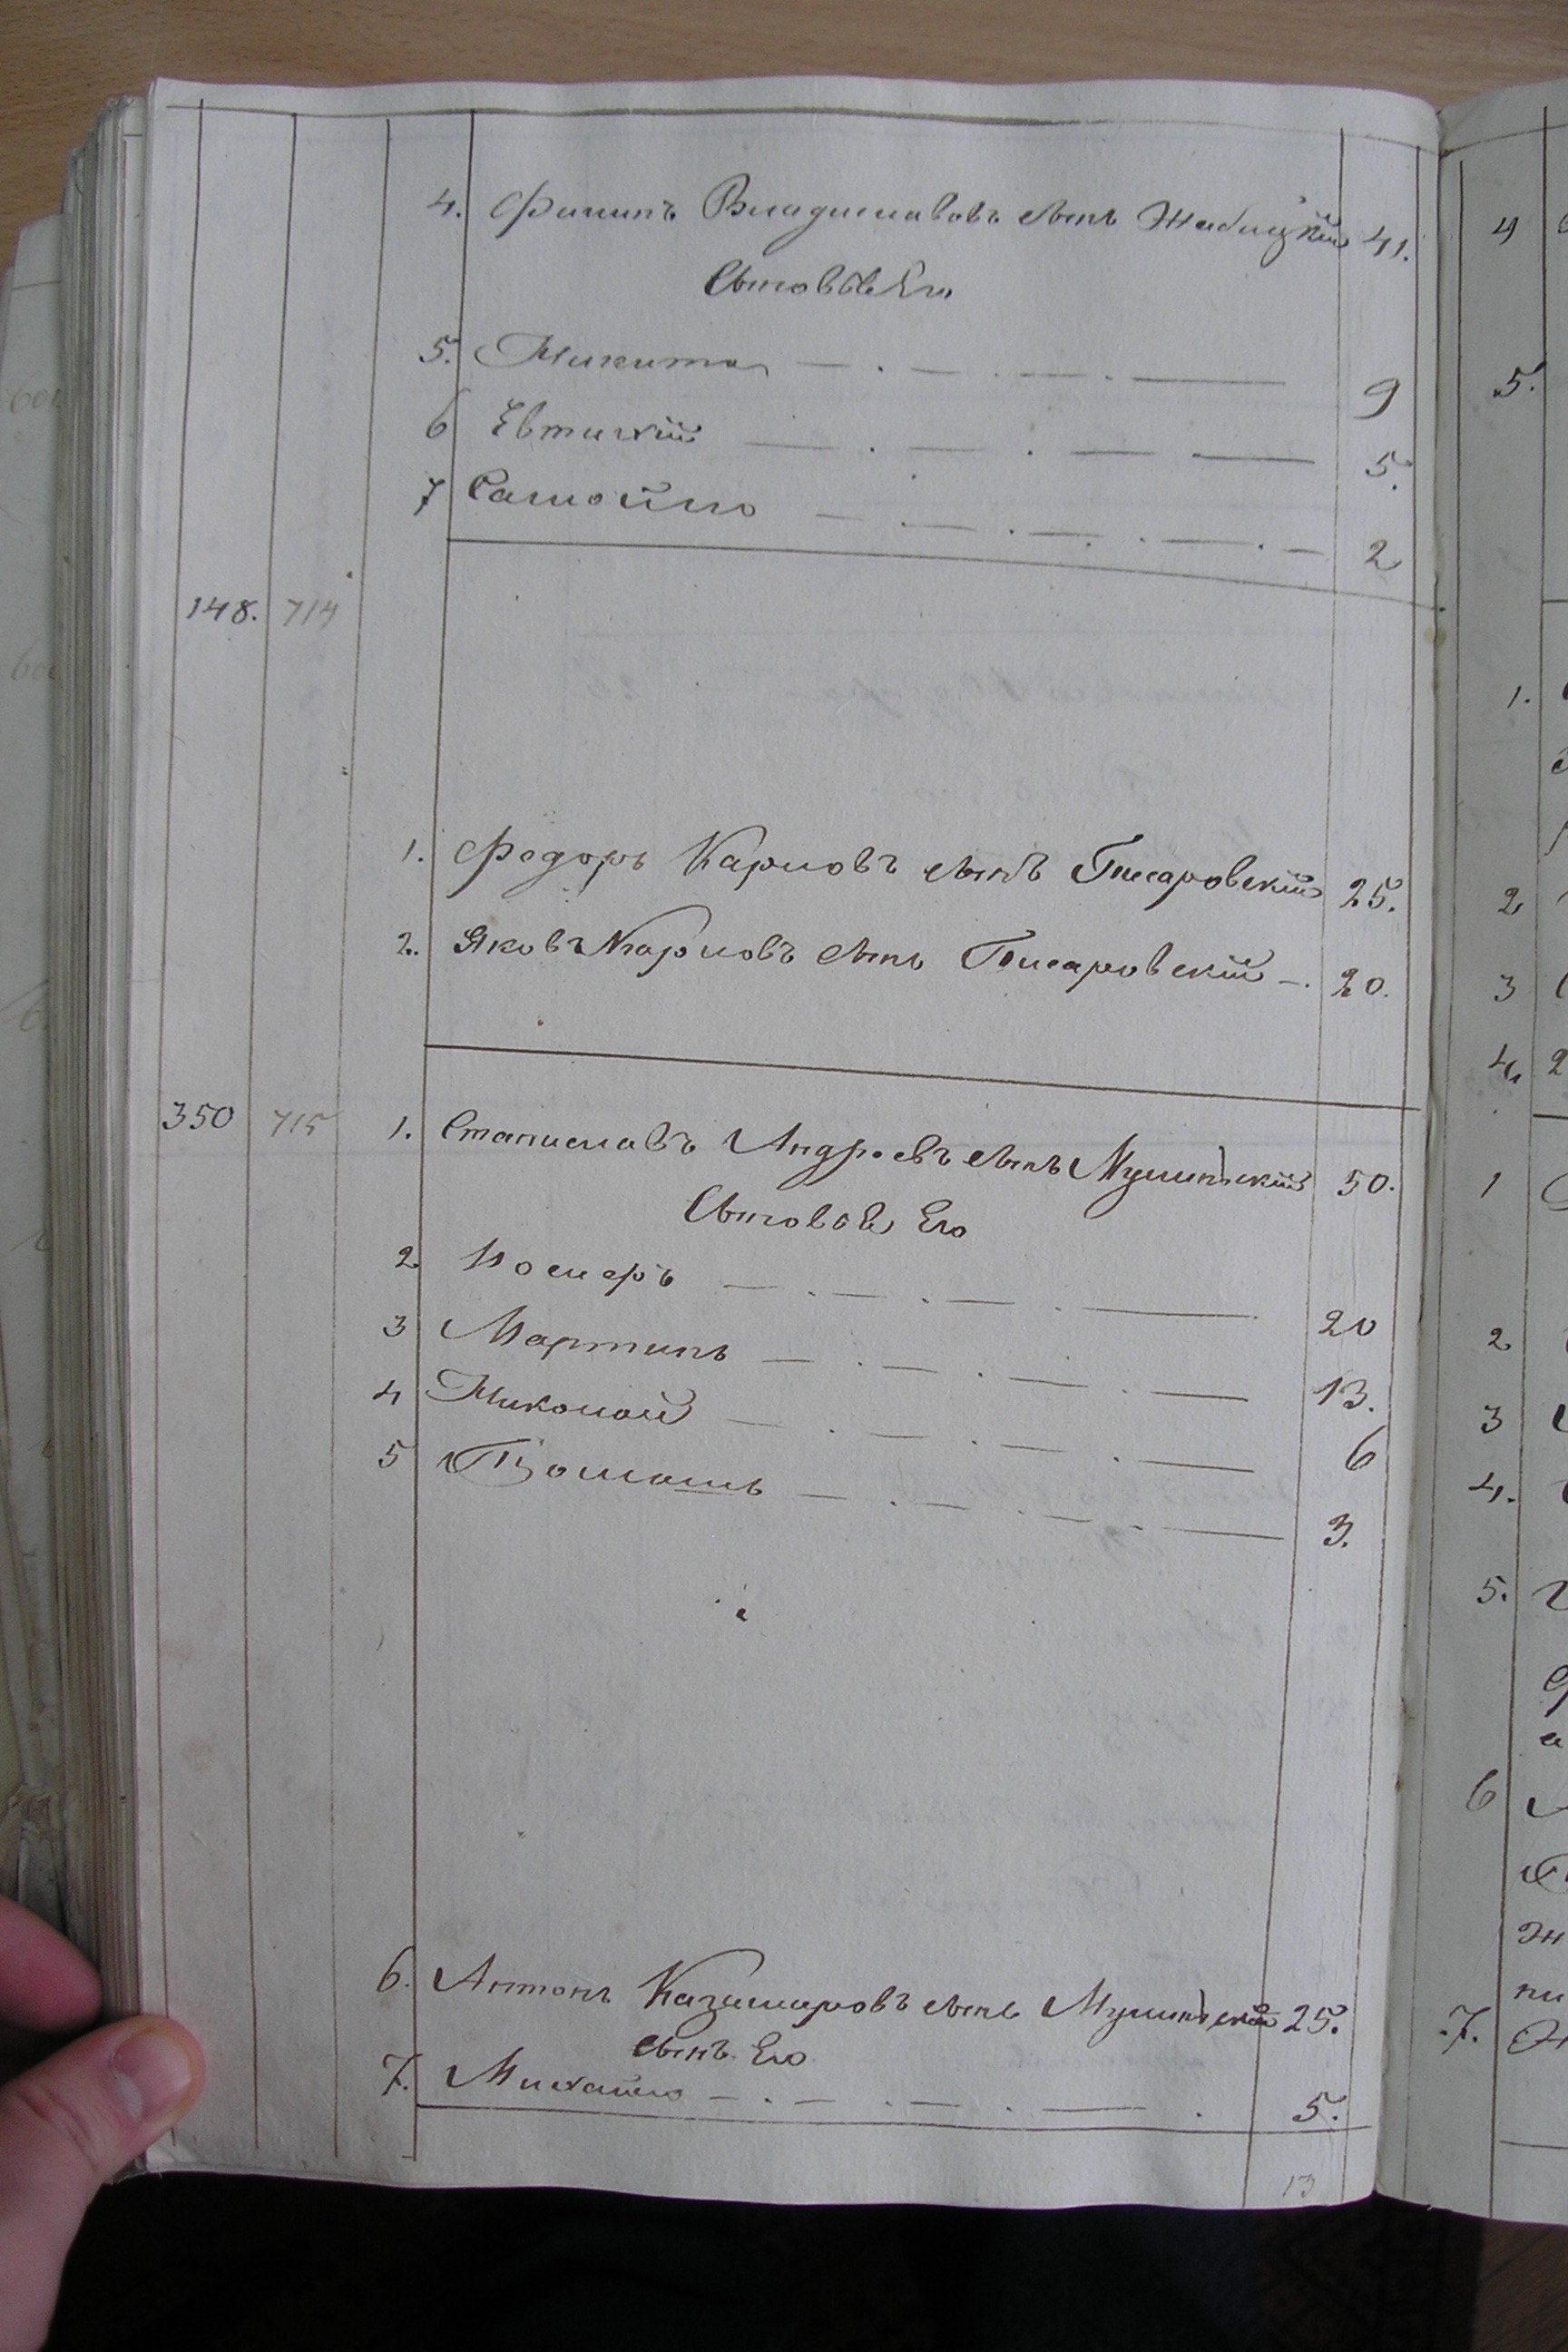 4. Филипъ Владиславовъ сынъ Жабицкій 41.
Сыновья Его
5. Никита 9
6 Евтихій 5.
7 Самойло 2
148. 714
1. Федоръ Карповъ сынъ Писаровскій 25.
2. Яковъ Карповъ сынъ Писаровскій 20.
350 715 1. Станиславъ Андреевъ сынъ 50.
Сыновья Его
2 Іосифъ 20
3 Мартинъ 13.
4 Николай 6
5 Томашъ 3.
6. Антонъ Казимировъ сынъ 25.
сынъ Его
7. Михайло 5.
13
4
5.
1.
2
3
4
1
2
3
4.
5.
6
7.